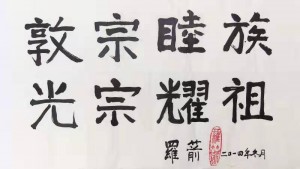 敦宗睦族
光宗耀祖
羅箭 二〇一四年冬月